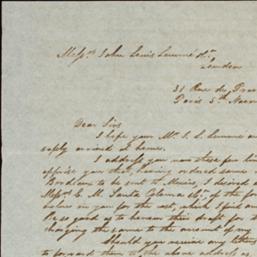 Messrs John Lewis
London
31 Rue de
Paris 5th
Dear Sirs
I hope your Mr. J. L. and
safely arrived at home.
I address you now these few
apprise you that, having ordered some
Bordeaux to be sent to Mexico, I desired
Messrs E. M. Santa Coloma
value on you for the cost, which I find
Be so good as to honour their draft for
charging the same to the account of my
Should you receive any letters
to forward them to the above address as